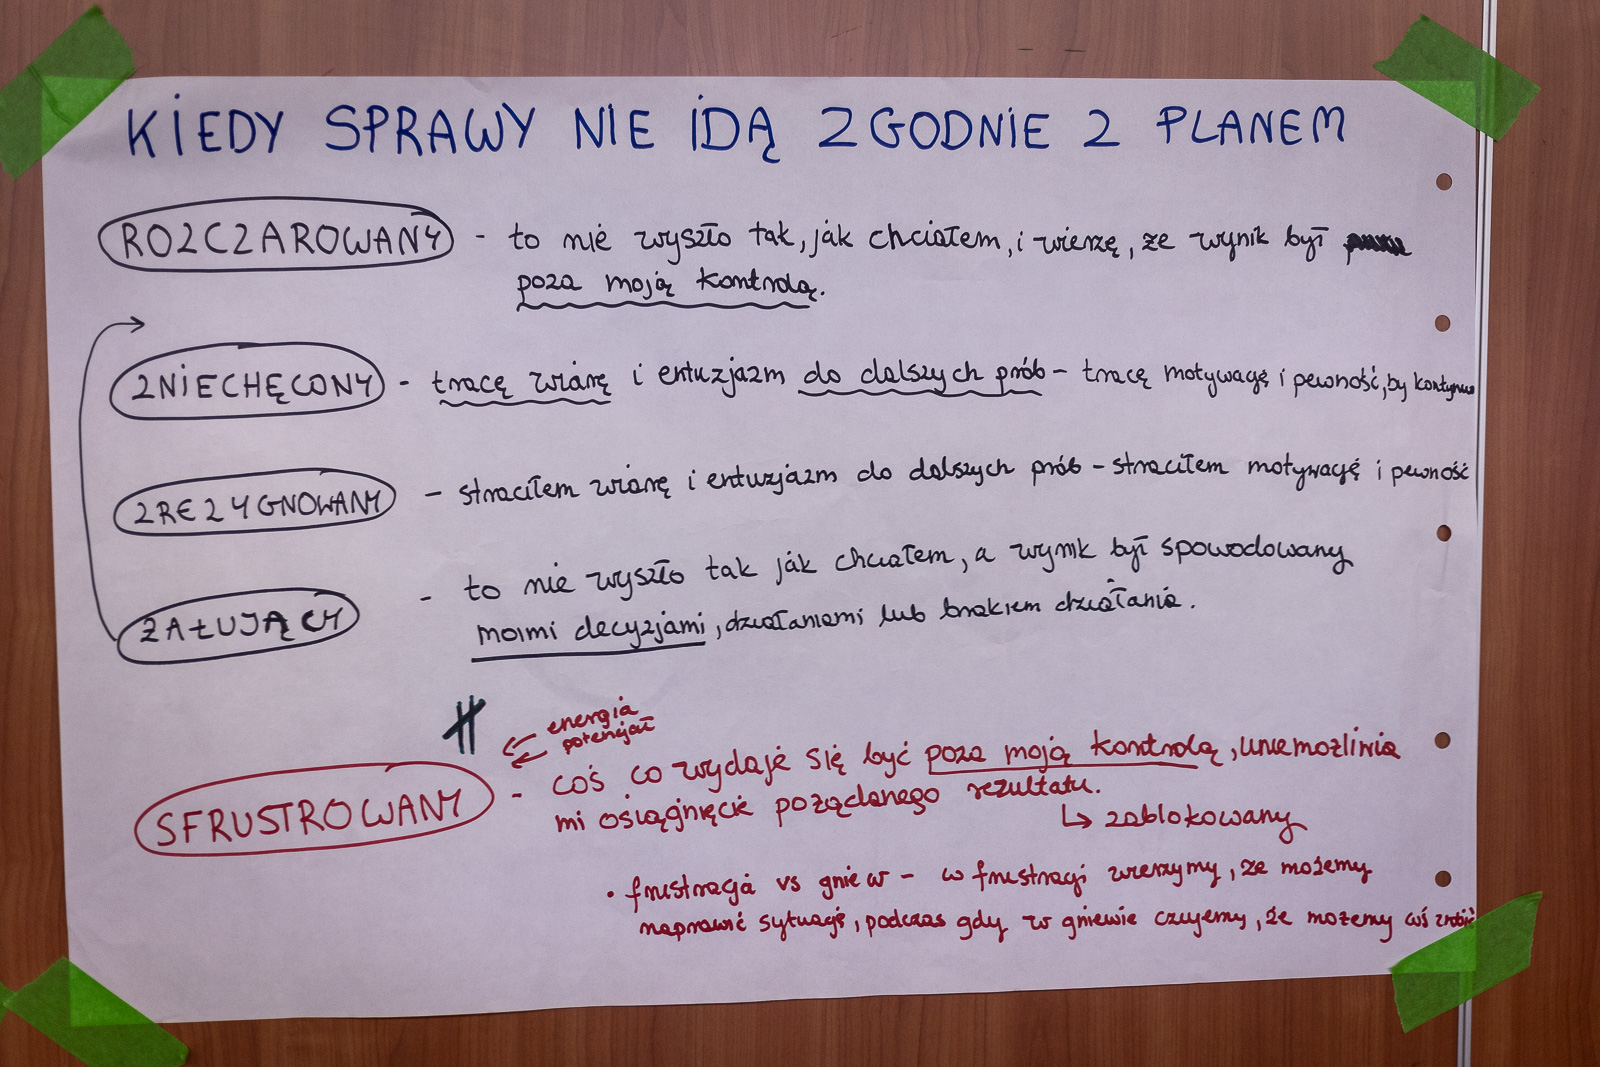 KIEDY SPRAWY NIE IDĄ ZGODNIE Z PLANEM
ROZCZAROWANY - to nie wyszło tak, jak chciałem, i wierzę, że wynik był
poza moją kontrolą.
ZNIECHĘCONY - tracę wiarę i entuzjazm do dalszych prób - tracę motywację i pewność, by
ZREZYGNOWANY - straciłem wiarę i entuzjazm do dalszych prób - straciłem motywację i pewność
ŻAŁUJĄCY - to nie wyszło tak jak chciałem, a wynik był spowodowany
moimi decyzjami, działaniami lub brakiem działania.
energia
potencjał
SFRUSTROWANY - coś co wydaje się być poza moją kontrolą, uniemożliwia
mi osiągnięcie pożądanego rezultatu.
↳ zablokowany
• frustracja vs gniew - w frustracji wierzymy, że możemy
naprawić sytuację, podczas gdy w gniewie czujemy, że możemy coś zrobić